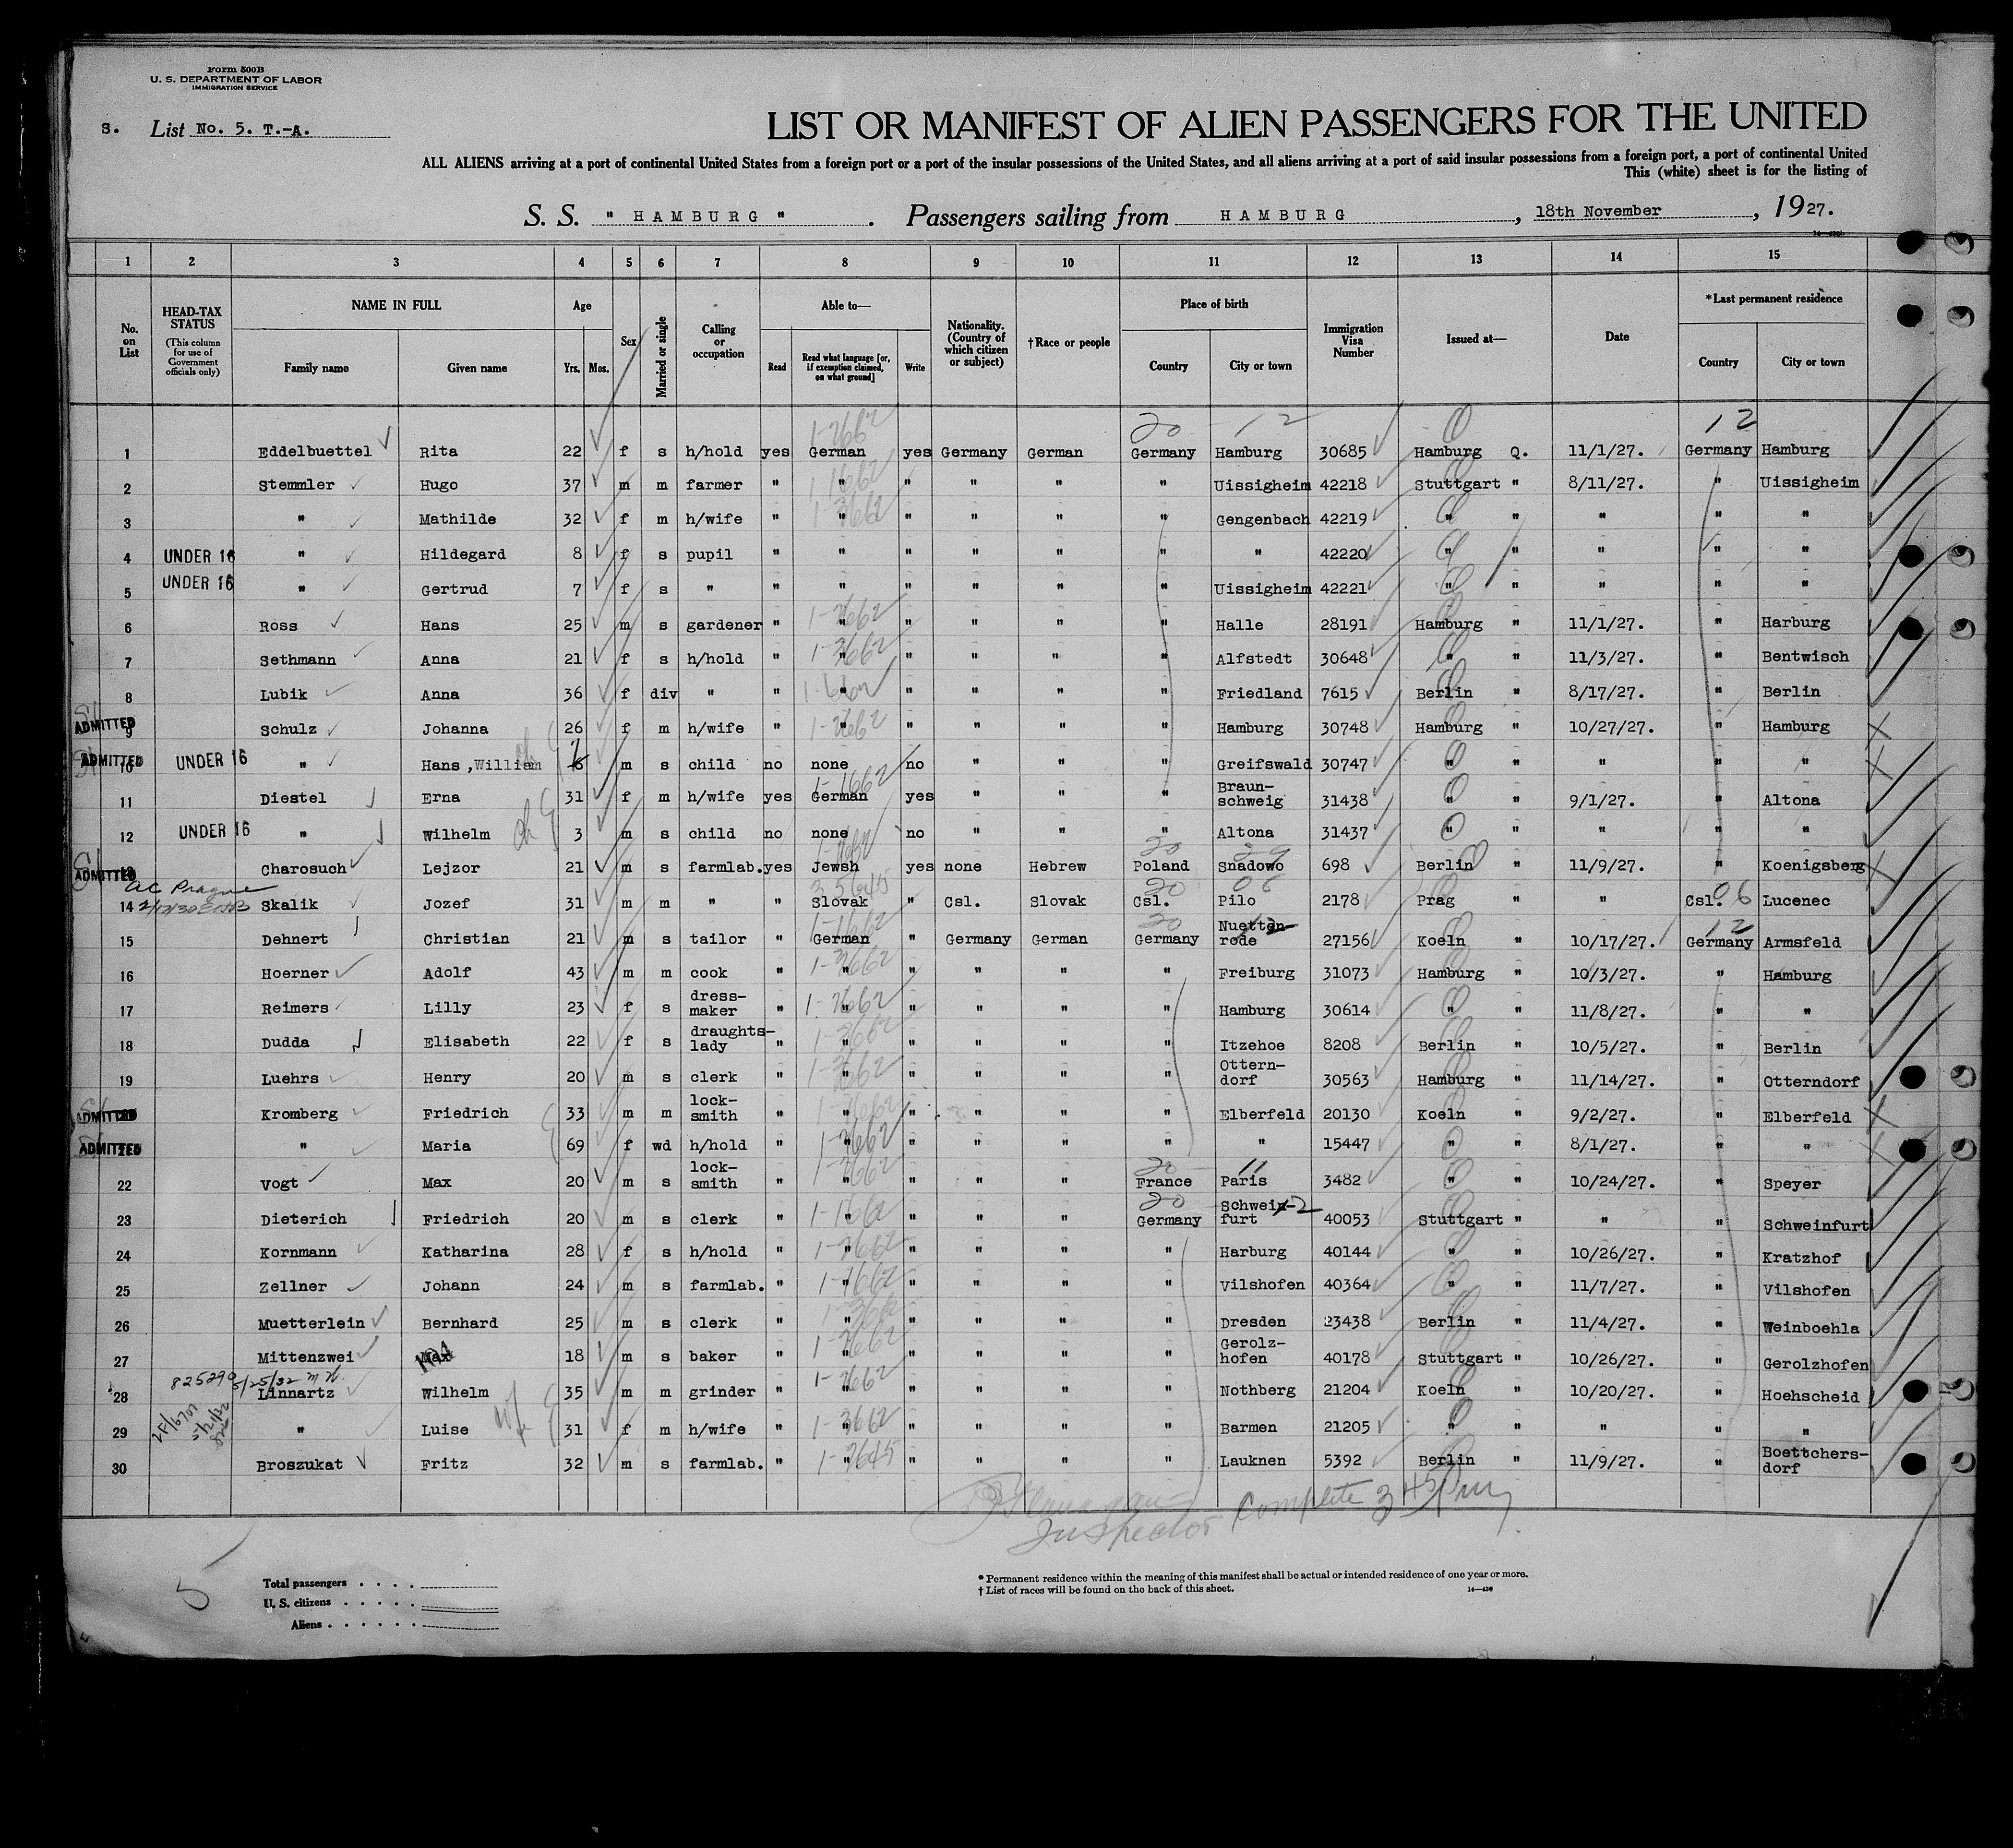 Form 500B
U. S. DEPARTMENT OF LABOR
IMMIGRATION SERVICE
S. List No. 5. T.-A.
LIST OR MANIFEST OF ALIEN PASSENGERS FOR THE UNITED
ALL ALIENS arriving at a port of continental United States from a foreign port or a port of the insular possessions of the United States, and all aliens arriving at a port of said insular possessions from a foreign port, a port of continental United
This (white) sheet is for the listing of
S. S. " HAMBURG " . Passengers sailing from HAMBURG , 18th November , 1927.
1 2 3 4 5 6 7 8 9 10 11 12 13 14 15
No. on List HEAD-TAX STATUS (This column for use of Government officials only) NAME IN FULL Family name Given name Age Yrs. Mos. Sex Married or single Calling or occupation Able to— Read Read what language [or, if exemption claimed, on what ground] Write Nationality. (Country of which citizen or subject) †Race or people Place of birth Country City or town Immigration Visa Number Issued at— Date *Last permanent residence Country City or town
20 12 12
1 Eddelbuettel Rita 22 f s h/hold yes German yes Germany German Germany Hamburg 30685 Hamburg Q. 11/1/27. Germany Hamburg
2 Stemmler Hugo 37 m m farmer " " " " " " Uissigheim 42218 Stuttgart " 8/11/27. " Uissigheim
3 " Mathilde 32 f m h/wife " " " " " " Gengenbach 42219 " " " " "
4 UNDER 16 " Hildegard 8 f s pupil " " " " " " " 42220 " " " " "
5 UNDER 16 " Gertrud 7 f s " " " " " " " Uissigheim 42221 " " " " "
6 Ross Hans 25 m s gardener " " " " " " Halle 28191 Hamburg " 11/1/27. " Harburg
7 Sethmann Anna 21 f s h/hold " " " " " " Alfstedt 30648 " " 11/3/27. " Bentwisch
8 Lubik Anna 36 f div " " " " " " " Friedland 7615 Berlin " 8/17/27. " Berlin
ADMITTED 9 Schulz Johanna 26 f m h/wife " " " " " " Hamburg 30748 Hamburg " 10/27/27. " Hamburg
ADMITTED 10 UNDER 16 " Hans, William m s child no none no " " " Greifswald 30747 " " " " "
11 Diestel Erna 31 f m h/wife yes German yes " " " Braun-schweig 31438 " " 9/1/27. " Altona
12 UNDER 16 " Wilhelm 3 m s child no none no " " " Altona 31437 " " " " "
ADMITTED Charosuch Lejzor 21 m s farmlab. yes Jewsh yes none Hebrew Poland Snadowo 698 Berlin " 11/9/27. " Koenigsberg
14 Skalik Jozef 31 m m " " Slovak " Csl. Slovak Csl. Pilo 2178 Prag " " Csl. Lucenec
15 Dehnert Christian 21 m s tailor " German " Germany German Germany Nuetten-rode 27156 Koeln " 10/17/27. Germany Armsfeld
16 Hoerner Adolf 43 m m cook " " " " " " Freiburg 31073 Hamburg " 10/3/27. " Hamburg
17 Reimers Lilly 23 f s dress-maker " " " " " " Hamburg 30614 " " 11/8/27. " "
18 Dudda Elisabeth 22 f s draughts-lady " " " " " " Itzehoe 8208 Berlin " 10/5/27. " Berlin
19 Luehrs Henry 20 m s clerk " " " " " " Ottern-dorf 30563 Hamburg " 11/14/27. " Otterndorf
ADMITTED Kromberg Friedrich 33 m m lock-smith " " " " " " Elberfeld 20130 Koeln " 9/2/27. " Elberfeld
ADMITTED " Maria 69 f wd h/hold " " " " " " " 15447 " " 8/1/27. " "
22 Vogt Max 20 m s lock-smith " " " " " France Paris 3482 " " 10/24/27. " Speyer
23 Dieterich Friedrich 20 m s clerk " " " " " Germany Schwein-furt 40053 Stuttgart " " " Schweinfurt
24 Kornmann Katharina 28 f s h/hold " " " " " " Harburg 40144 " " 10/26/27. " Kratzhof
25 Zellner Johann 24 m s farmlab. " " " " " " Vilshofen 40364 " " 11/7/27. " Vilshofen
26 Muetterlein Bernhard 25 m s clerk " " " " " " Dresden 23438 Berlin " 11/4/27. " Weinboehla
27 Mittenzwei Max 18 m s baker " " " " " " Gerolz-hofen 40178 Stuttgart " 10/26/27. " Gerolzhofen
825290 5/25/32
28 Linnartz Wilhelm 35 m m grinder " " " " " " Nothberg 21204 Koeln " 10/20/27. " Hoehscheid
29 " Luise 31 f m h/wife " " " " " " Barmen 21205 " " " " "
30 Broszukat Fritz 32 m s farmlab. " " " " " " Lauknen 5392 Berlin " 11/9/27. " Boettchers-dorf
Inspector Complete
5
Total passengers . . . .
U. S. citizens . . . . .
Aliens . . . . . .
* Permanent residence within the meaning of this manifest shall be actual or intended residence of one year or more.
† List of races will be found on the back of this sheet.
14—430